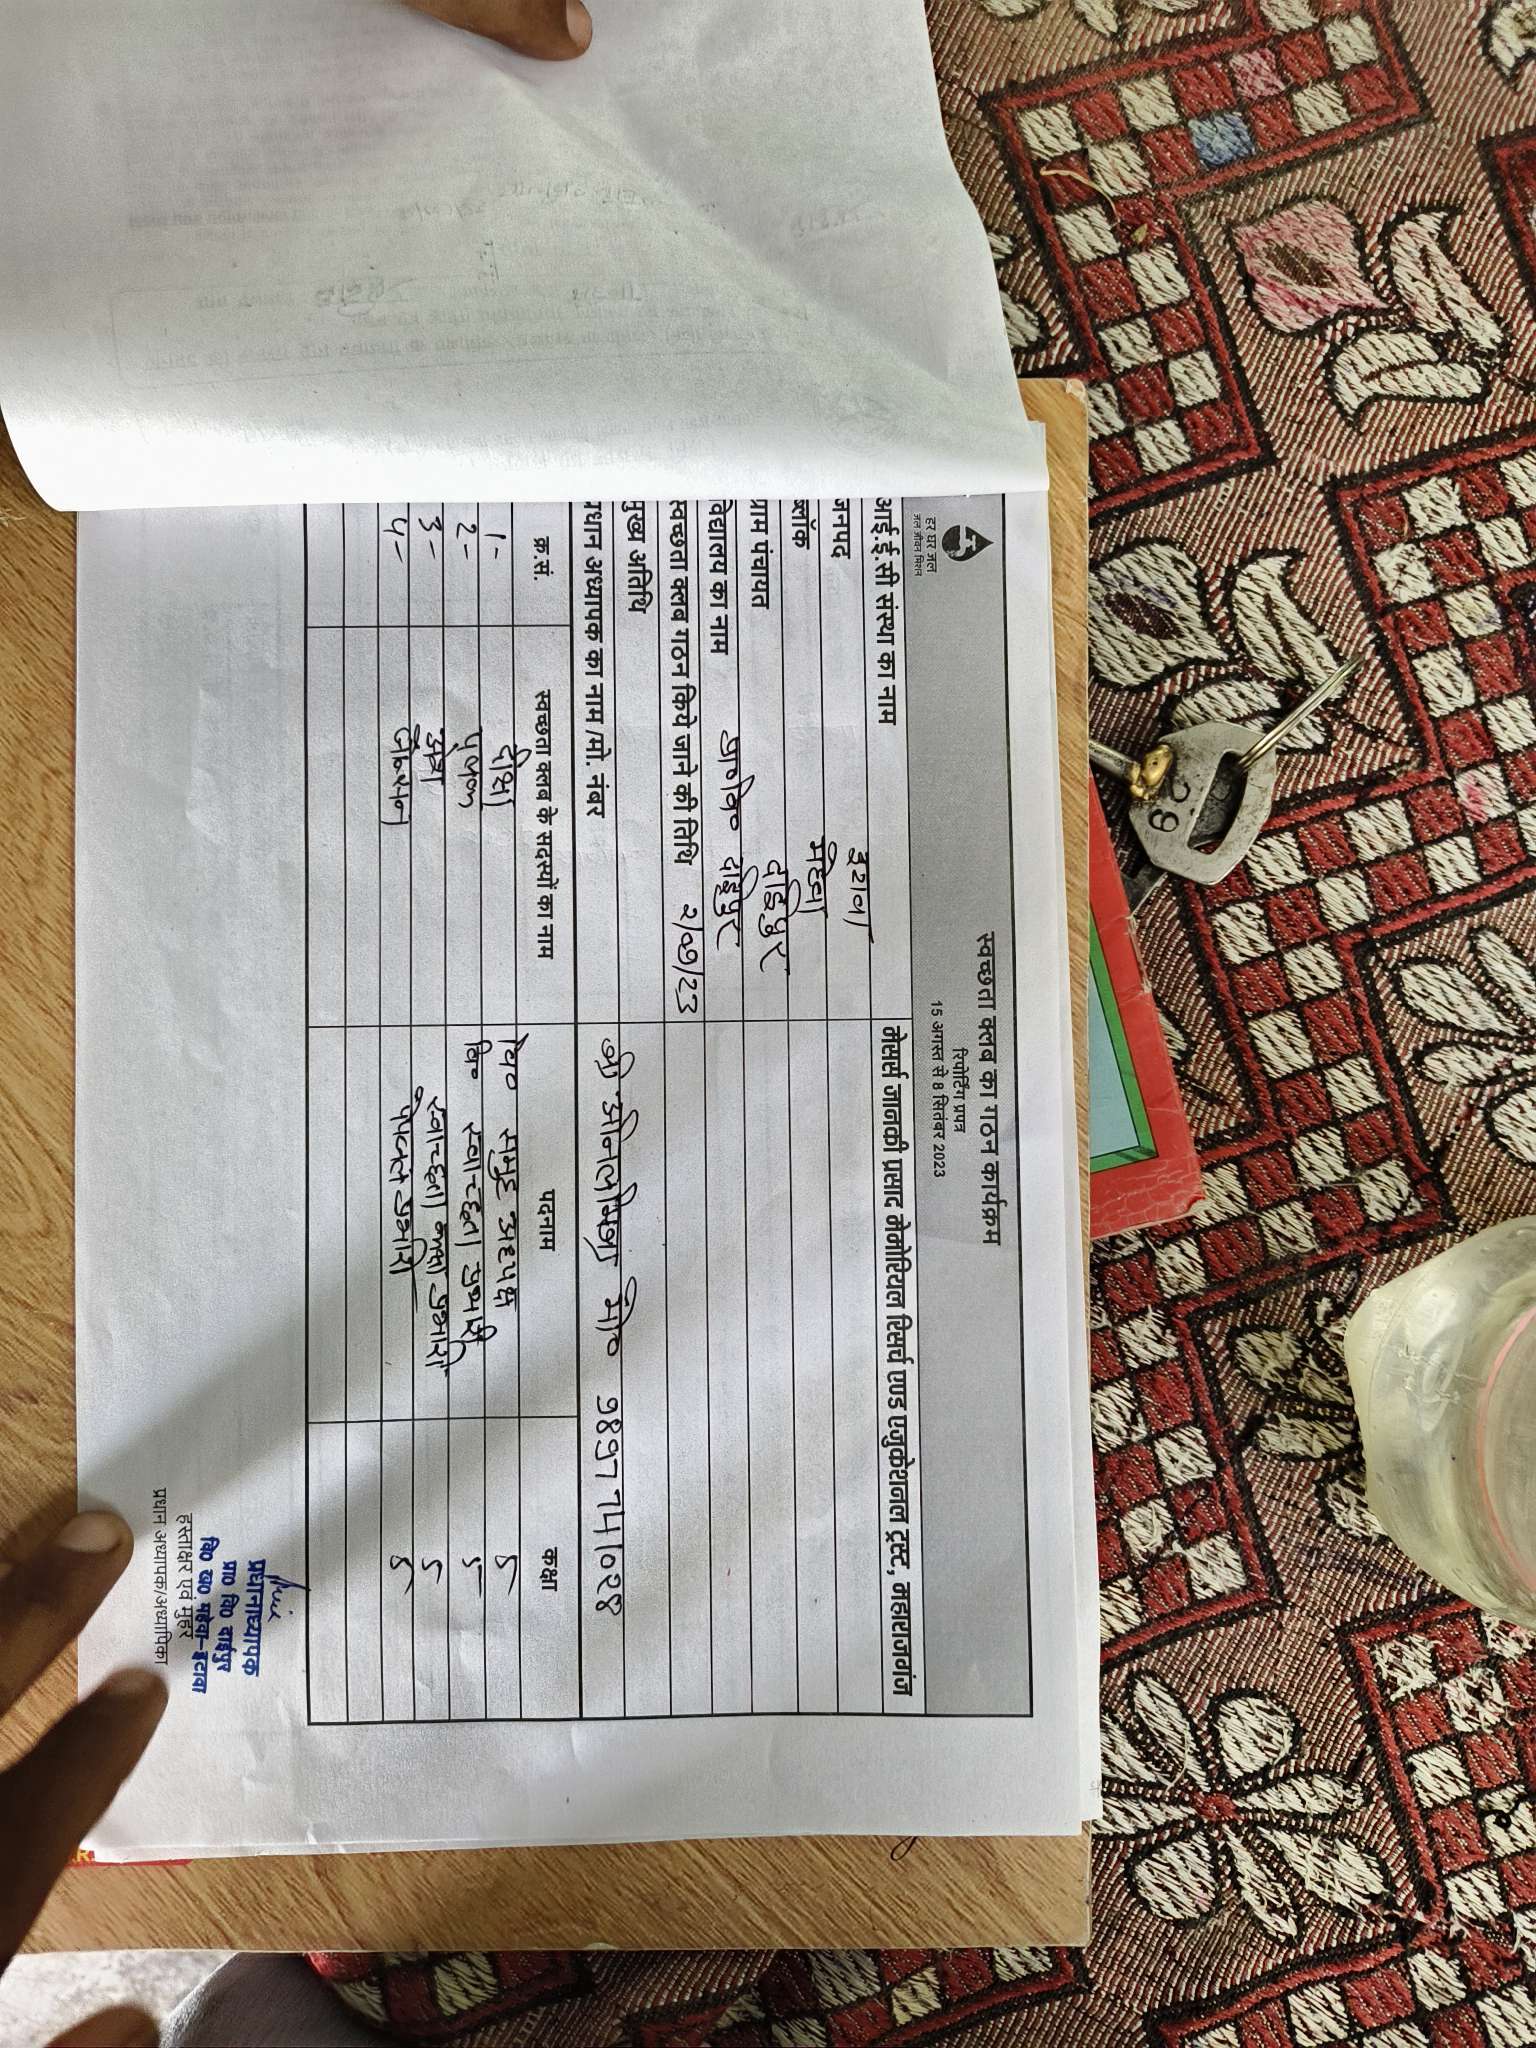 हर घर जल
जल जीवन मिशन
स्वच्छता क्लब का गठन कार्यक्रम
रिपोर्टिंग प्रपत्र
15 अगस्त से 8 सितंबर 2023
आई.ई.सी संस्था का नाम मेसर्स जानकी प्रसाद मेमोरियल रिसर्च एण्ड एजुकेशनल ट्रस्ट, महाराजगंज
जनपद इटावा
ब्लॉक महेवा
ग्राम पंचायत दाईपुर
विद्यालय का नाम प्रा० वि० दाईपुर
स्वच्छता क्लब गठन किये जाने की तिथि 2/09/23
मुख्य अतिथि
प्रधान अध्यापक का नाम /मो. नंबर श्री मो० 9897741028
क्र.सं. स्वच्छता क्लब के सदस्यों का नाम पदनाम कक्षा
1- समूह अध्यक्ष 5
2- वि० स्वच्छता प्रभारी 5
3- स्वच्छता कक्षा प्रभारी 5
4- पेयजल प्रभारी 5
प्रधानाध्यापक
प्रा० वि० दाईपुर
वि० ख० महेवा-इटावा
हस्ताक्षर एवं मुहर
प्रधान अध्यापक/अध्यापिका